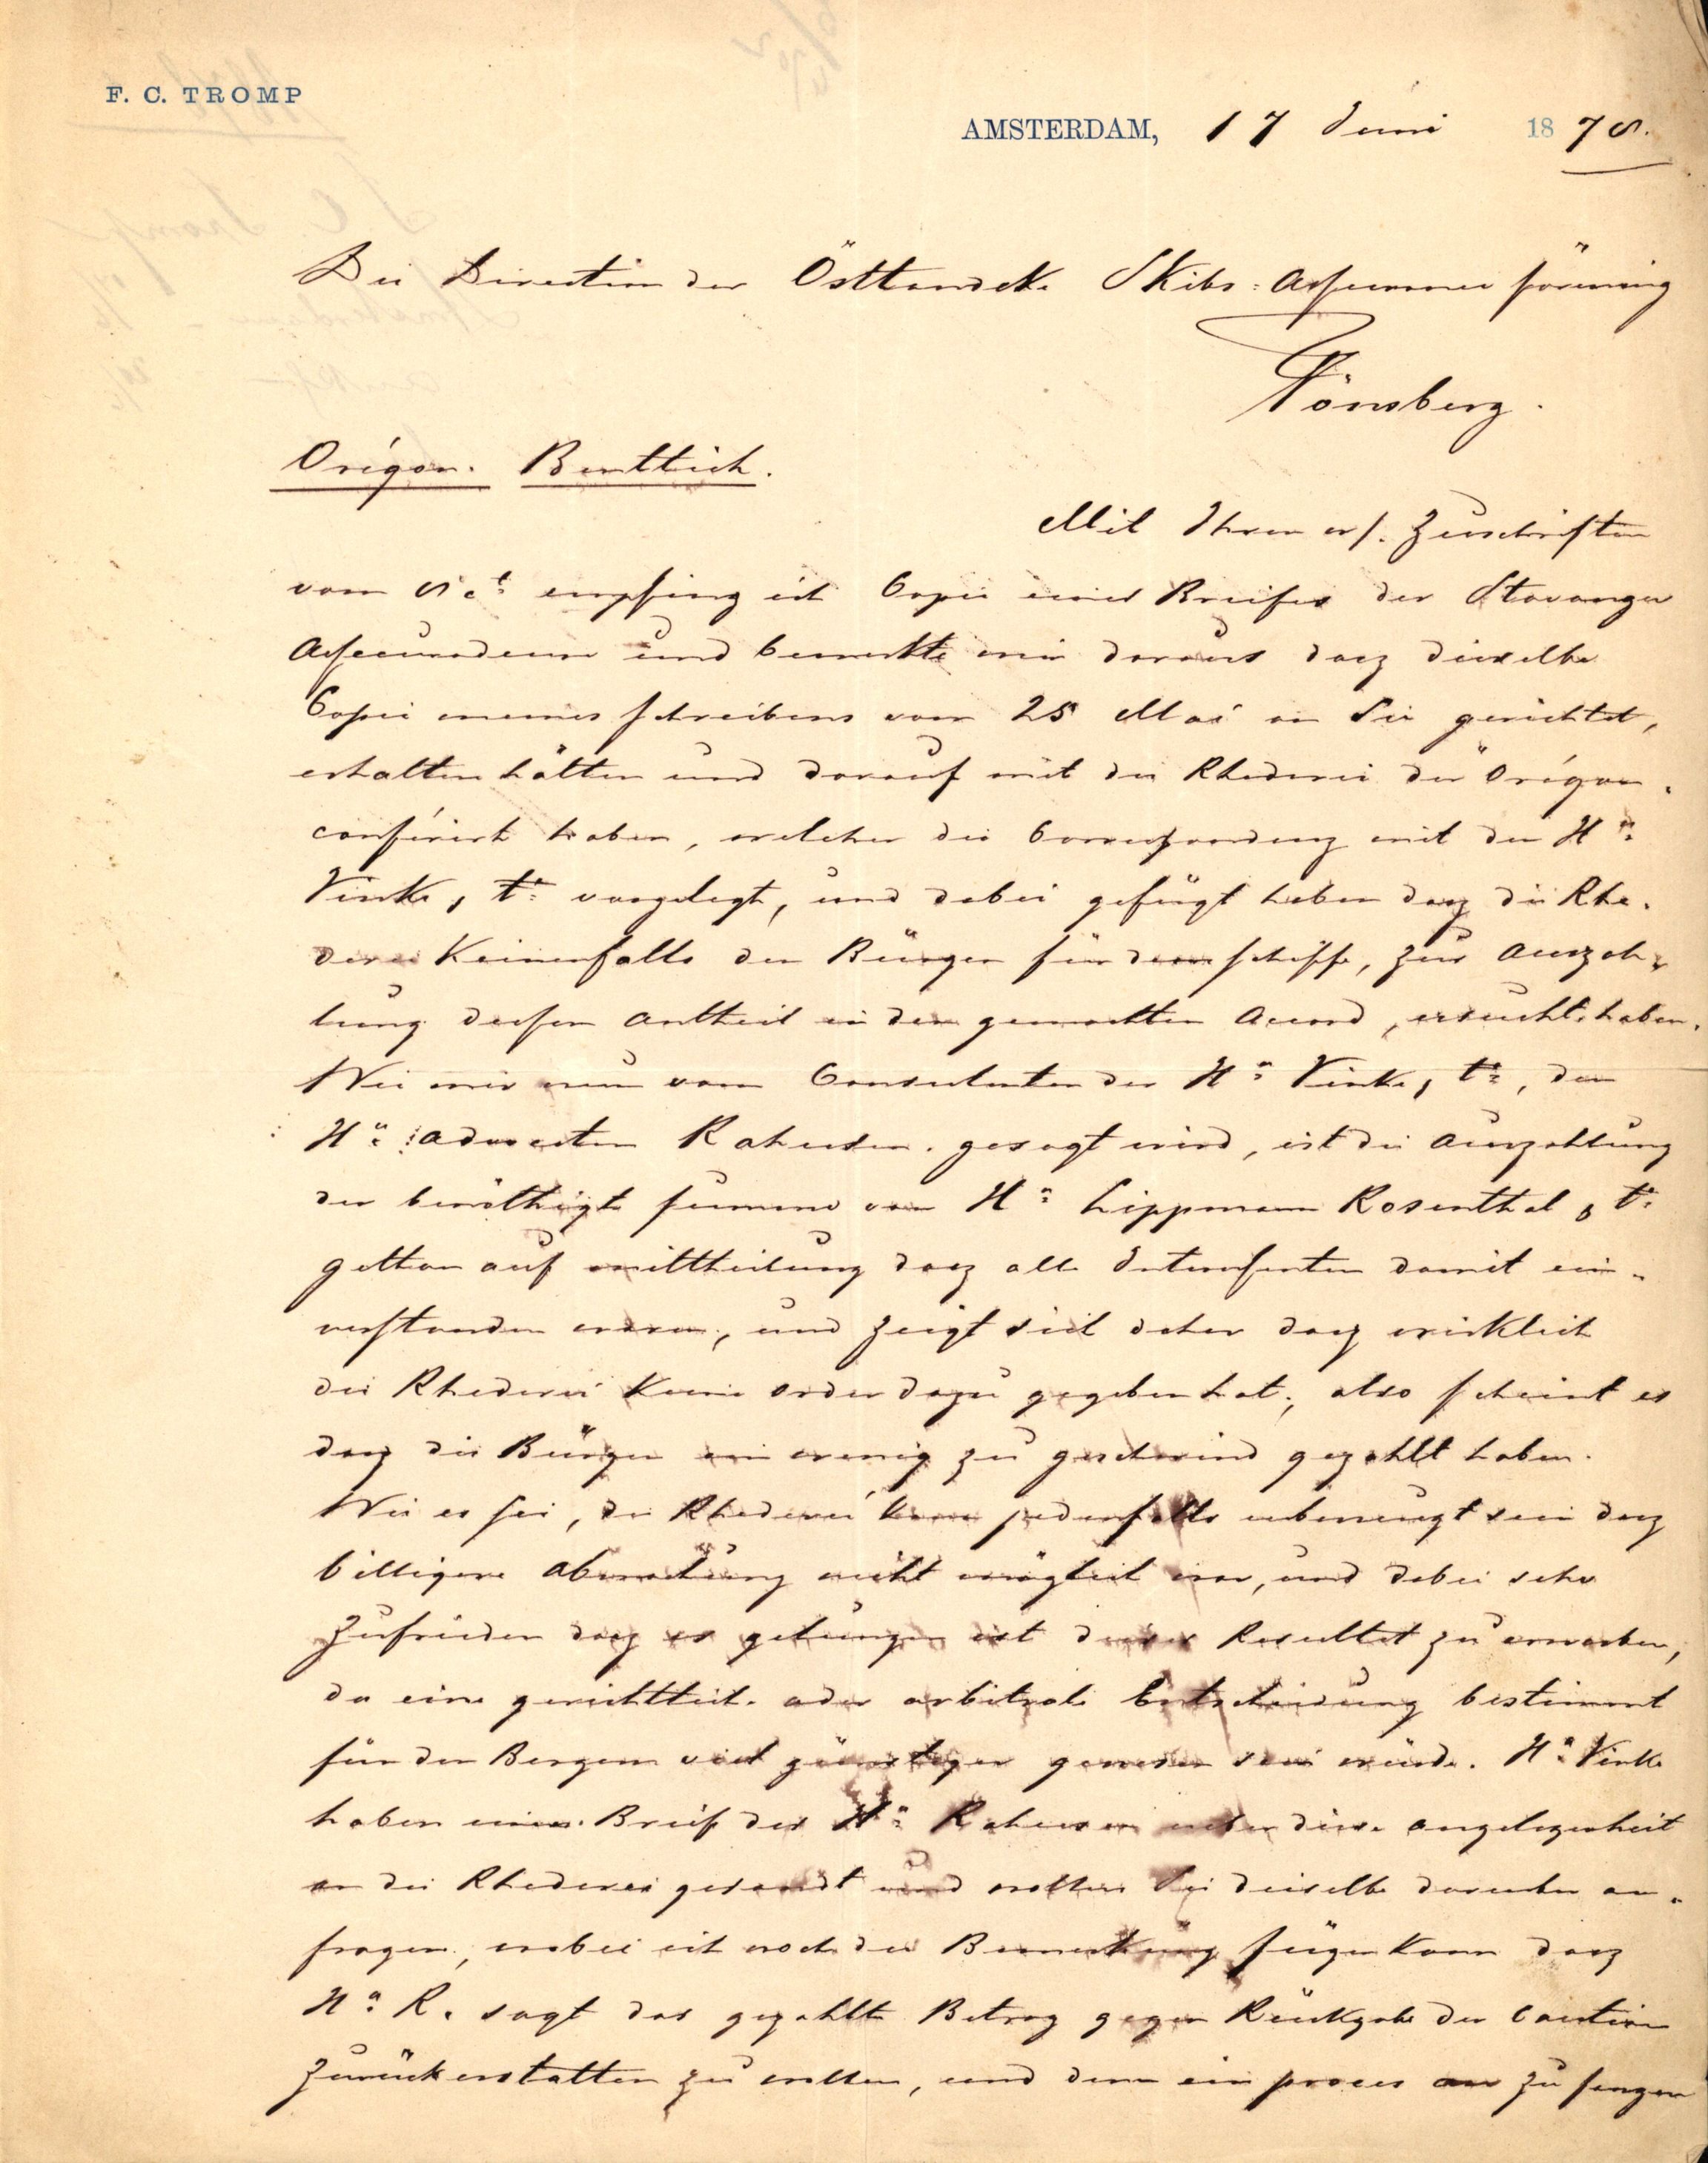 F. C. TROMP
AMSTERDAM, 17 Juni 1878.
Die Direction der Östlandske Skibs: Assurance förening
Tönsberg.
Origon. Bentlich.
Mit Ihren Zuschriften
vom empfing ich Copie eines Briefes der Stavanger
Assecuradeure und bemerkte mir daraus dasz dieselbe
Copie meines schreibens vom 25 Mai an Sie gerichtet,
erhalten hätten und darauf mit die Rhederei der Origon
conferirt haben, welcher die Correspondenz mit den Hn
Vinke, & Co vorgelegt, und dabei gefügt haben dasz die Rhe-
derei Keinenfalls den Bürgen für dem schiffe, zur Auszah-
lung dessen Antheil in den gemachten Acord, ersucht haben.
Wie mir nun vom Consulenten der Hn Vinke & Co, den
Hn Advocaten Rahusen gesagt wird, ist die Auszahlung
der benöthigte summe von Hn Lippmann Rosenthal & Co
gethan auf mittheilung dasz alle Interessenten damit ein-
verstanden waren, und zeigt sich daher dasz wirklich
die Rhederei Keine order dazu gegeben hat; also scheint es
dasz die Bürgen ein wenig zu geschwind gezahlt haben.
Wie es sei, die Rhederei kann jedenfalls ueberzeugt sein dasz
billigere Abmachung nicht möglich war, und dabei sehr
zufrieden dasz es gelungen ist dieses Resultat zu erwerben,
da eine gerichtlich. oder arbitrale Entscheidung bestimmt
für den Bergern viel günstiger gewesen sein würde. Hn Vinke
haben einen Brief des Hn Rahusen ueber diese angelegenheit
an die Rhederei gesandt und wollen Sie dieselbe darueber an-
fragen, wobei ich noch die Bemerkung fügen kann dasz
Hn R. sagt das gezahlte Betrag gegen Rückgabe der Caution
zurückerstatten zu wollen, und dann ein proces an zu fangen